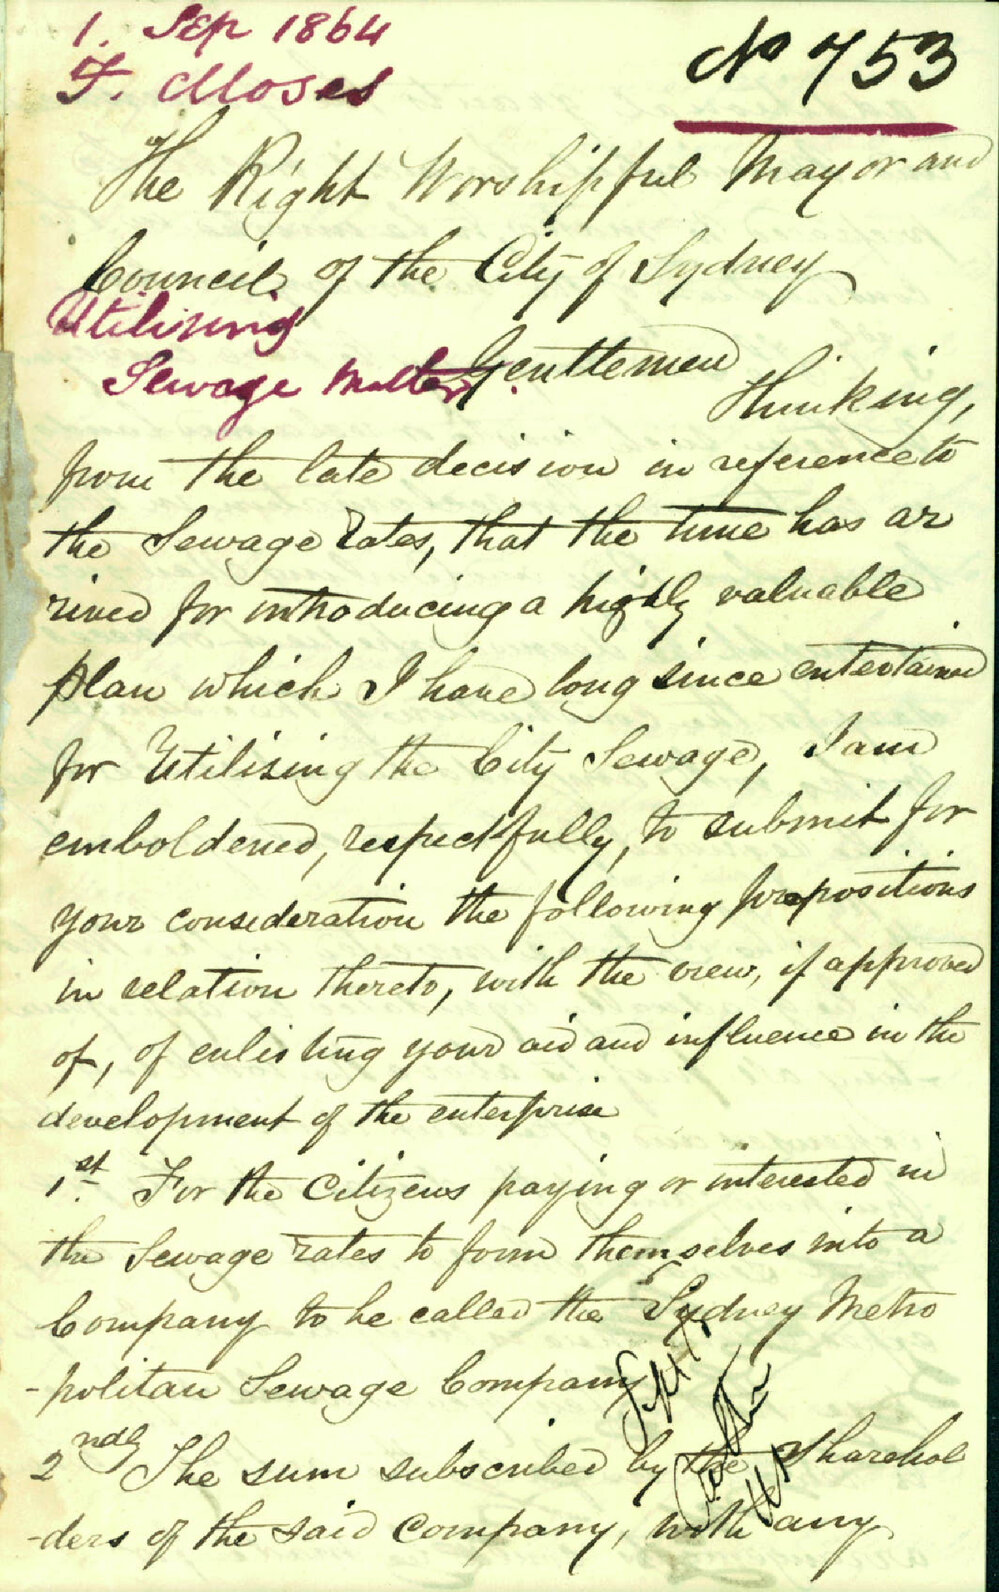 1. Sep 1864
F. Moses
No 753
The Right Worshipful Mayor and
Council of the City of Sydney
Utilising
Sewage Matter.
Gentlemen
Thinking,
from the late decision in reference to
the Sewage Rates, that the time has ar
rived for introducing a highly valuable
plan which I have long since entertained
for Utilising the City Sewage, I am
emboldened, respectfully, to submit for
your consideration the following propositions
in relation thereto, with the view, if approved
of, of enlisting your aid and influence in the
development of the enterprise
1st. For the Citizens paying or interested in
the Sewage rates to form themselves into a
Company to be called the Sydney Metro
-politan Sewage Company
2ndly The sum subscribed by the Sharehol
-ders of the said Company, with any